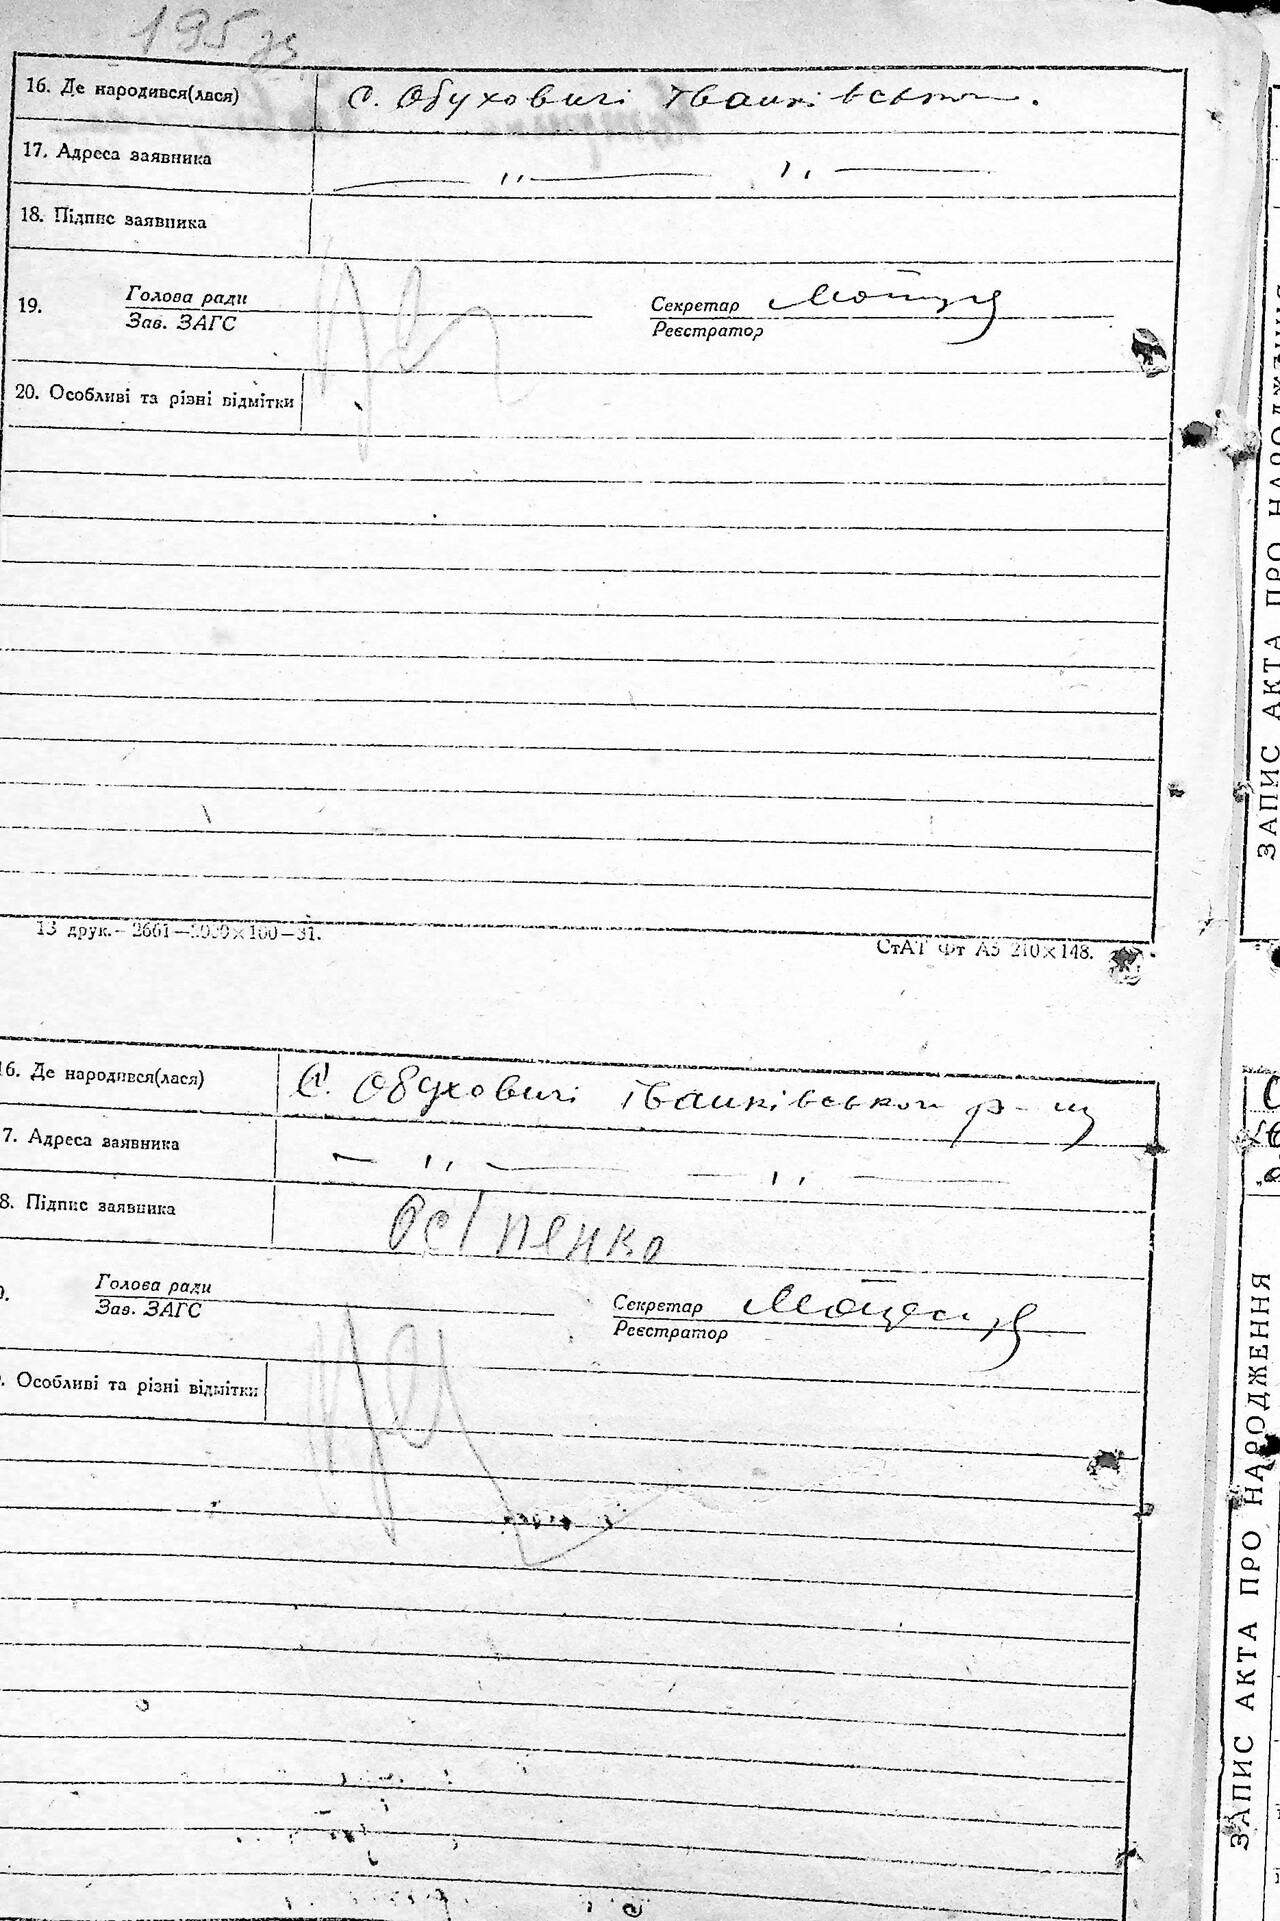 195
16. Де народився(лася) с. Обуховичі Іванківською.
17. Адреса заявника — ,, — ,, —
18. Підпис заявника
19. Голова ради Секретар
Зав. ЗАГС Реєстратор
20. Особливі та різні відмітки
13 друк.—2661—5000×100—31.
СтАТ Фт А5 210×148.
16. Де народився(лася) с. Обуховичі Іванківського р-ну
7. Адреса заявника — ,, — — ,, —
8. Підпис заявника Осіпенко
Голова ради Секретар
Зав. ЗАГС Реєстратор
. Особливі та різні відмітки
ЗАПИС АКТА ПРО НАРОДЖЕННЯ
ЗАПИС АКТА ПРО НАРОДЖЕННЯ